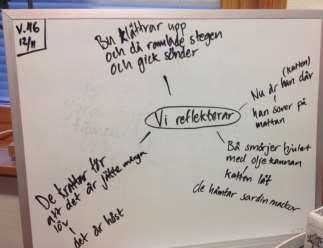 V. 46
12/11
Bu klättrar upp
och då ramlade stegen
och gick sönder
Vi reflekterar
Nu är han där
(katten)
han sover på
mattan
Bå smörjer hjulet
med oljekannan
katten låt
de hämtar sardinmackor
De krattar för
att det är jätte många
löv!
det är höst